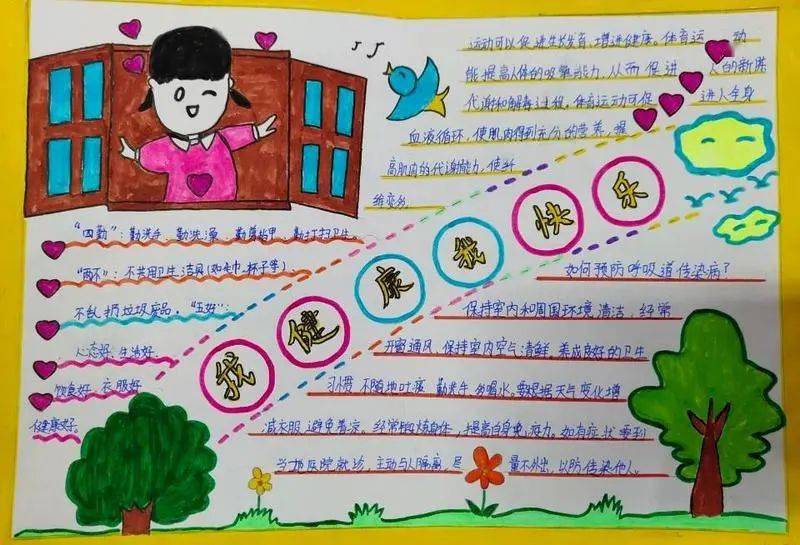 运动可以促进生长发育,增进健康。体育运动
能提高人体的吸氧能力,从而促进人的新陈
代谢和解毒过程,体育运动可促进人全身
血液循环,使肌肉得到充分的营养,提
高肌肉的代谢能力,使纤
维变
我健康我快乐
"四勤":勤洗手、勤洗澡、勤剪指甲、勤打扫卫生。
"两不":不共用卫生洁具(如毛巾、杯子等)
不乱扔垃圾废品。"五好":
心态好、生活好、
饮食好、衣服好
健康好
如何预防呼吸道传染病?
保持室内和周围环境清洁,经常
开窗通风、保持室内空气清鲜 养成良好的卫生
习惯 不随地吐痰 勤洗手 多喝水。要根据天气变化增
减衣服 避免着凉。经常锻炼身体,提高自身免疫力。如有症状要到
当地医院就诊,主动与人隔离,尽量不外出,以防传染他人。